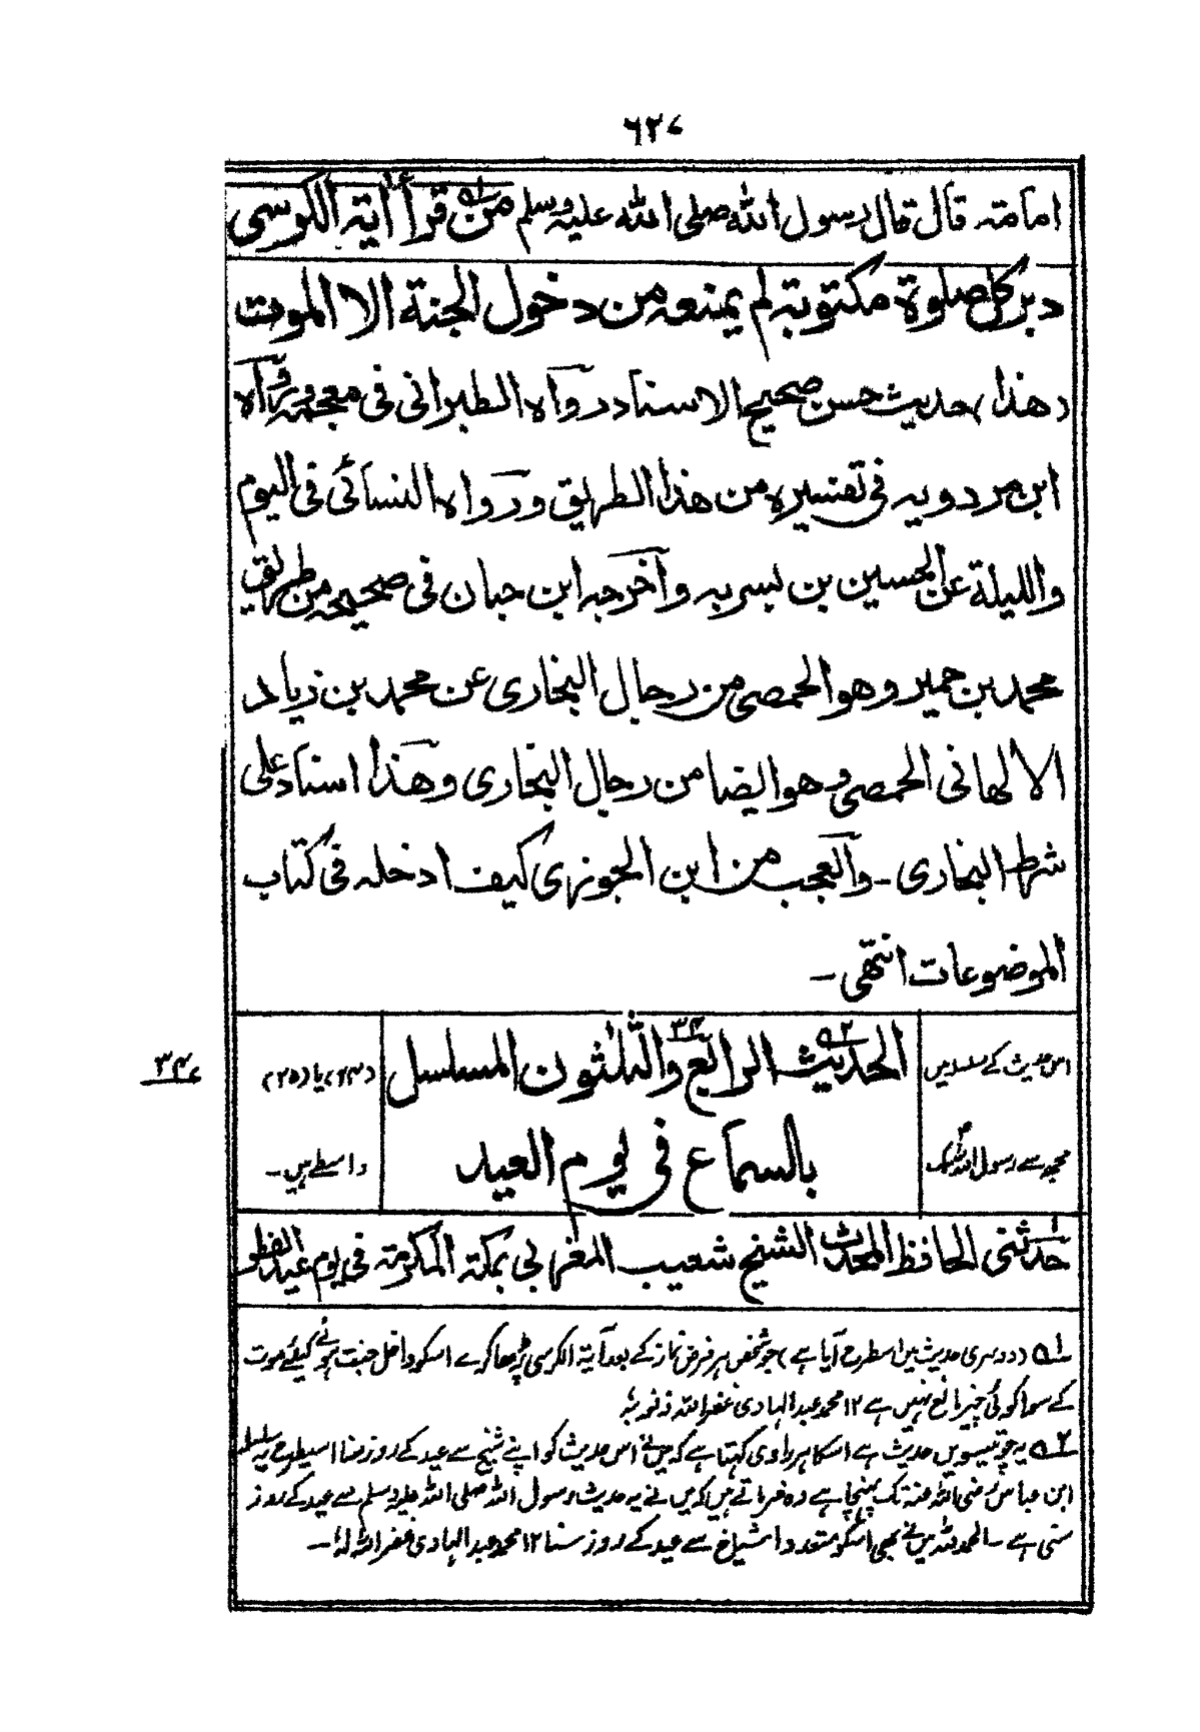 ٦٢٧
امامتہ قال قال رسول اللہ صلی اللہ علیہ وسلم من قرأ اٰیتہ الکرسی
دبر کل صلوۃ مکتوبتہ لم یمنعہ من دخول الجنۃ الا الموت
(ھذا) حدیث حسن صحیح الاسناد رواہ الطبرانی فی معجمہ ورواہ
ابن مردویہ فی تفسیرہ من ھذا الطریق ورواہ النسائی فی الیوم
واللیلۃ عن الحسین بن بسر بہ واخرجہ ابن حبان فی صحیحہ من طریق
محمد بن حمیر وھو الحمصی من رجال البخاری عن محمد بن زیاد
الالھانی الحمصی وھو ایضا من رجال البخاری وھذا اسناد علی
شرط البخاری ۔ والعجب من ابن الجوزی کیف ادخلہ فی کتاب
الموضوعات انتھی ۔
اس حدیث کے سلسلہ میں
مجھ سے رسول اللہ تک
الحدیث الرابع والثلثون المسلسل
بالسماع فی یوم العید
(۲۴) یا (۲۵)
واسطے ہیں ۔
۳۴
حدثنی الحافظ المحدث الشیخ شعیب المغربی بمکۃ المکرمۃ فی یوم عید الفطر
۱ (دوسری حدیث میں اسطرح آیا ہے) جو شخص ہر فرض نماز کے بعد آیۃ الکرسی پڑھا کرے اسکو داخل جنت ہونے کیلئے موت
کے سوا کوئی چیز مانع نہیں ہے ۱۲ محمد عبد الہادی غفر اللہ ذنوبہ
۲ یہ چوتیسویں حدیث ہے اسکا ہر راوی کہتا ہے کہ میں نے اس حدیث کو اپنے شیخ سے عید کے روز سنا اسیطرح یہ سلسلہ
ابن عباس رضی اللہ عنہ تک پہنچا ہے وہ فرماتے ہیں کہ میں نے یہ حدیث رسول اللہ صلی اللہ علیہ وسلم سے عید کے روز
سنی ہے ۔ الحمد للہ میں نے بھی اسکو متعدد مشایخ سے عید کے روز سنا ۱۲ محمد عبد الہادی غفر اللہ لہٗ ۔